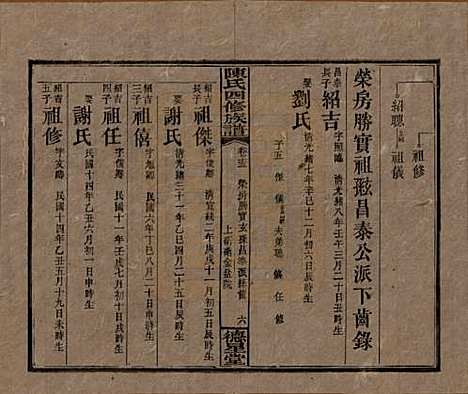 祖修
紹聰 祖儀
榮房勝實祖弶昌泰公派下齒錄
昌泰長子 紹吉 字照臨 清光緒八年壬午三月二十日辰時生
娶 劉氏 清光緒七年辛巳十二月初六日辰時生
子五 傑 僖 夫弟聰 儀 任 修
陳氏四修族譜
卷三 榮房勝實玄孫昌泰派
上
六
德星堂
紹吉長子 祖傑 字俊卿 清光緒二十年戊戌十一月初八日辰時生
娶 謝氏 清光緒三十一年乙巳四月二十日戌時生
紹吉三子 祖僖 民國六年丁巳八月二十日申時生
紹吉四子 祖任 字俊卿 民國十一年壬戌七月初十日辰時生
娶 謝氏 民國十四年乙丑六月初一日申時生
紹吉五子 祖修 字文卿 民國十四年乙丑五月十九日未時生